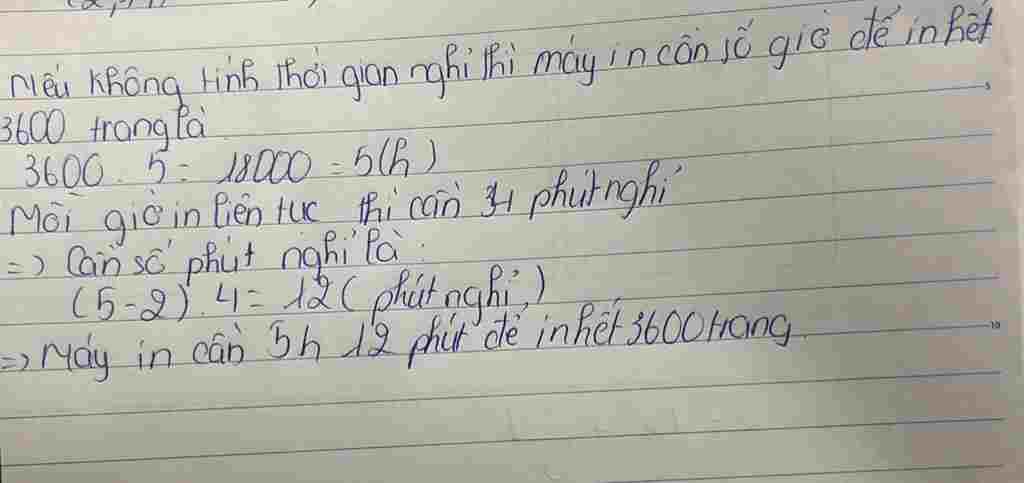 Nếu không tính thời gian nghỉ thì máy in cần số giờ để in hết
3600 trang là
3600 . 5 = 18000 = 5(h)
Mỗi giờ in liên tục thì cần 4 phút nghỉ
=> Cần số phút nghỉ là :
(5-2) . 4 = 12 (phút nghỉ)
=> Máy in cần 5h 12 phút để in hết 3600 trang